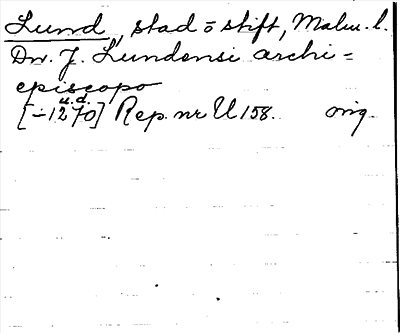 Lund, stad o stift, Malm. l.
Dn. J. Lundensi archi=
episcopo
u.d.
[-1270] Rep. nr U 158. orig.